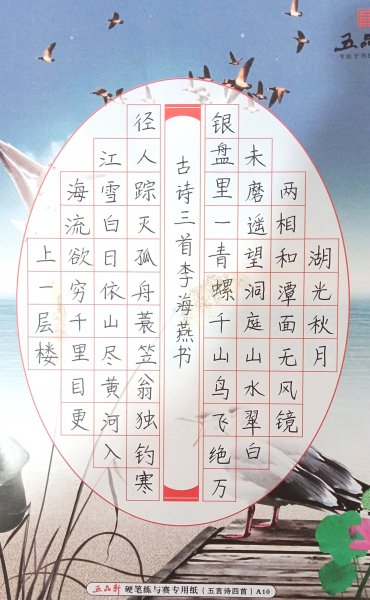 五品
湖光秋月
两相和潭面无风镜
未磨遥望洞庭山水翠白
银盘里一青螺千山鸟飞绝万
古诗三首李海燕书
径人踪灭孤舟蓑笠翁独钓寒
江雪白日依山尽黄河入
海流欲穷千里目更
上一层楼
五品轩 硬笔练与赛专用纸（五言诗四首）A10